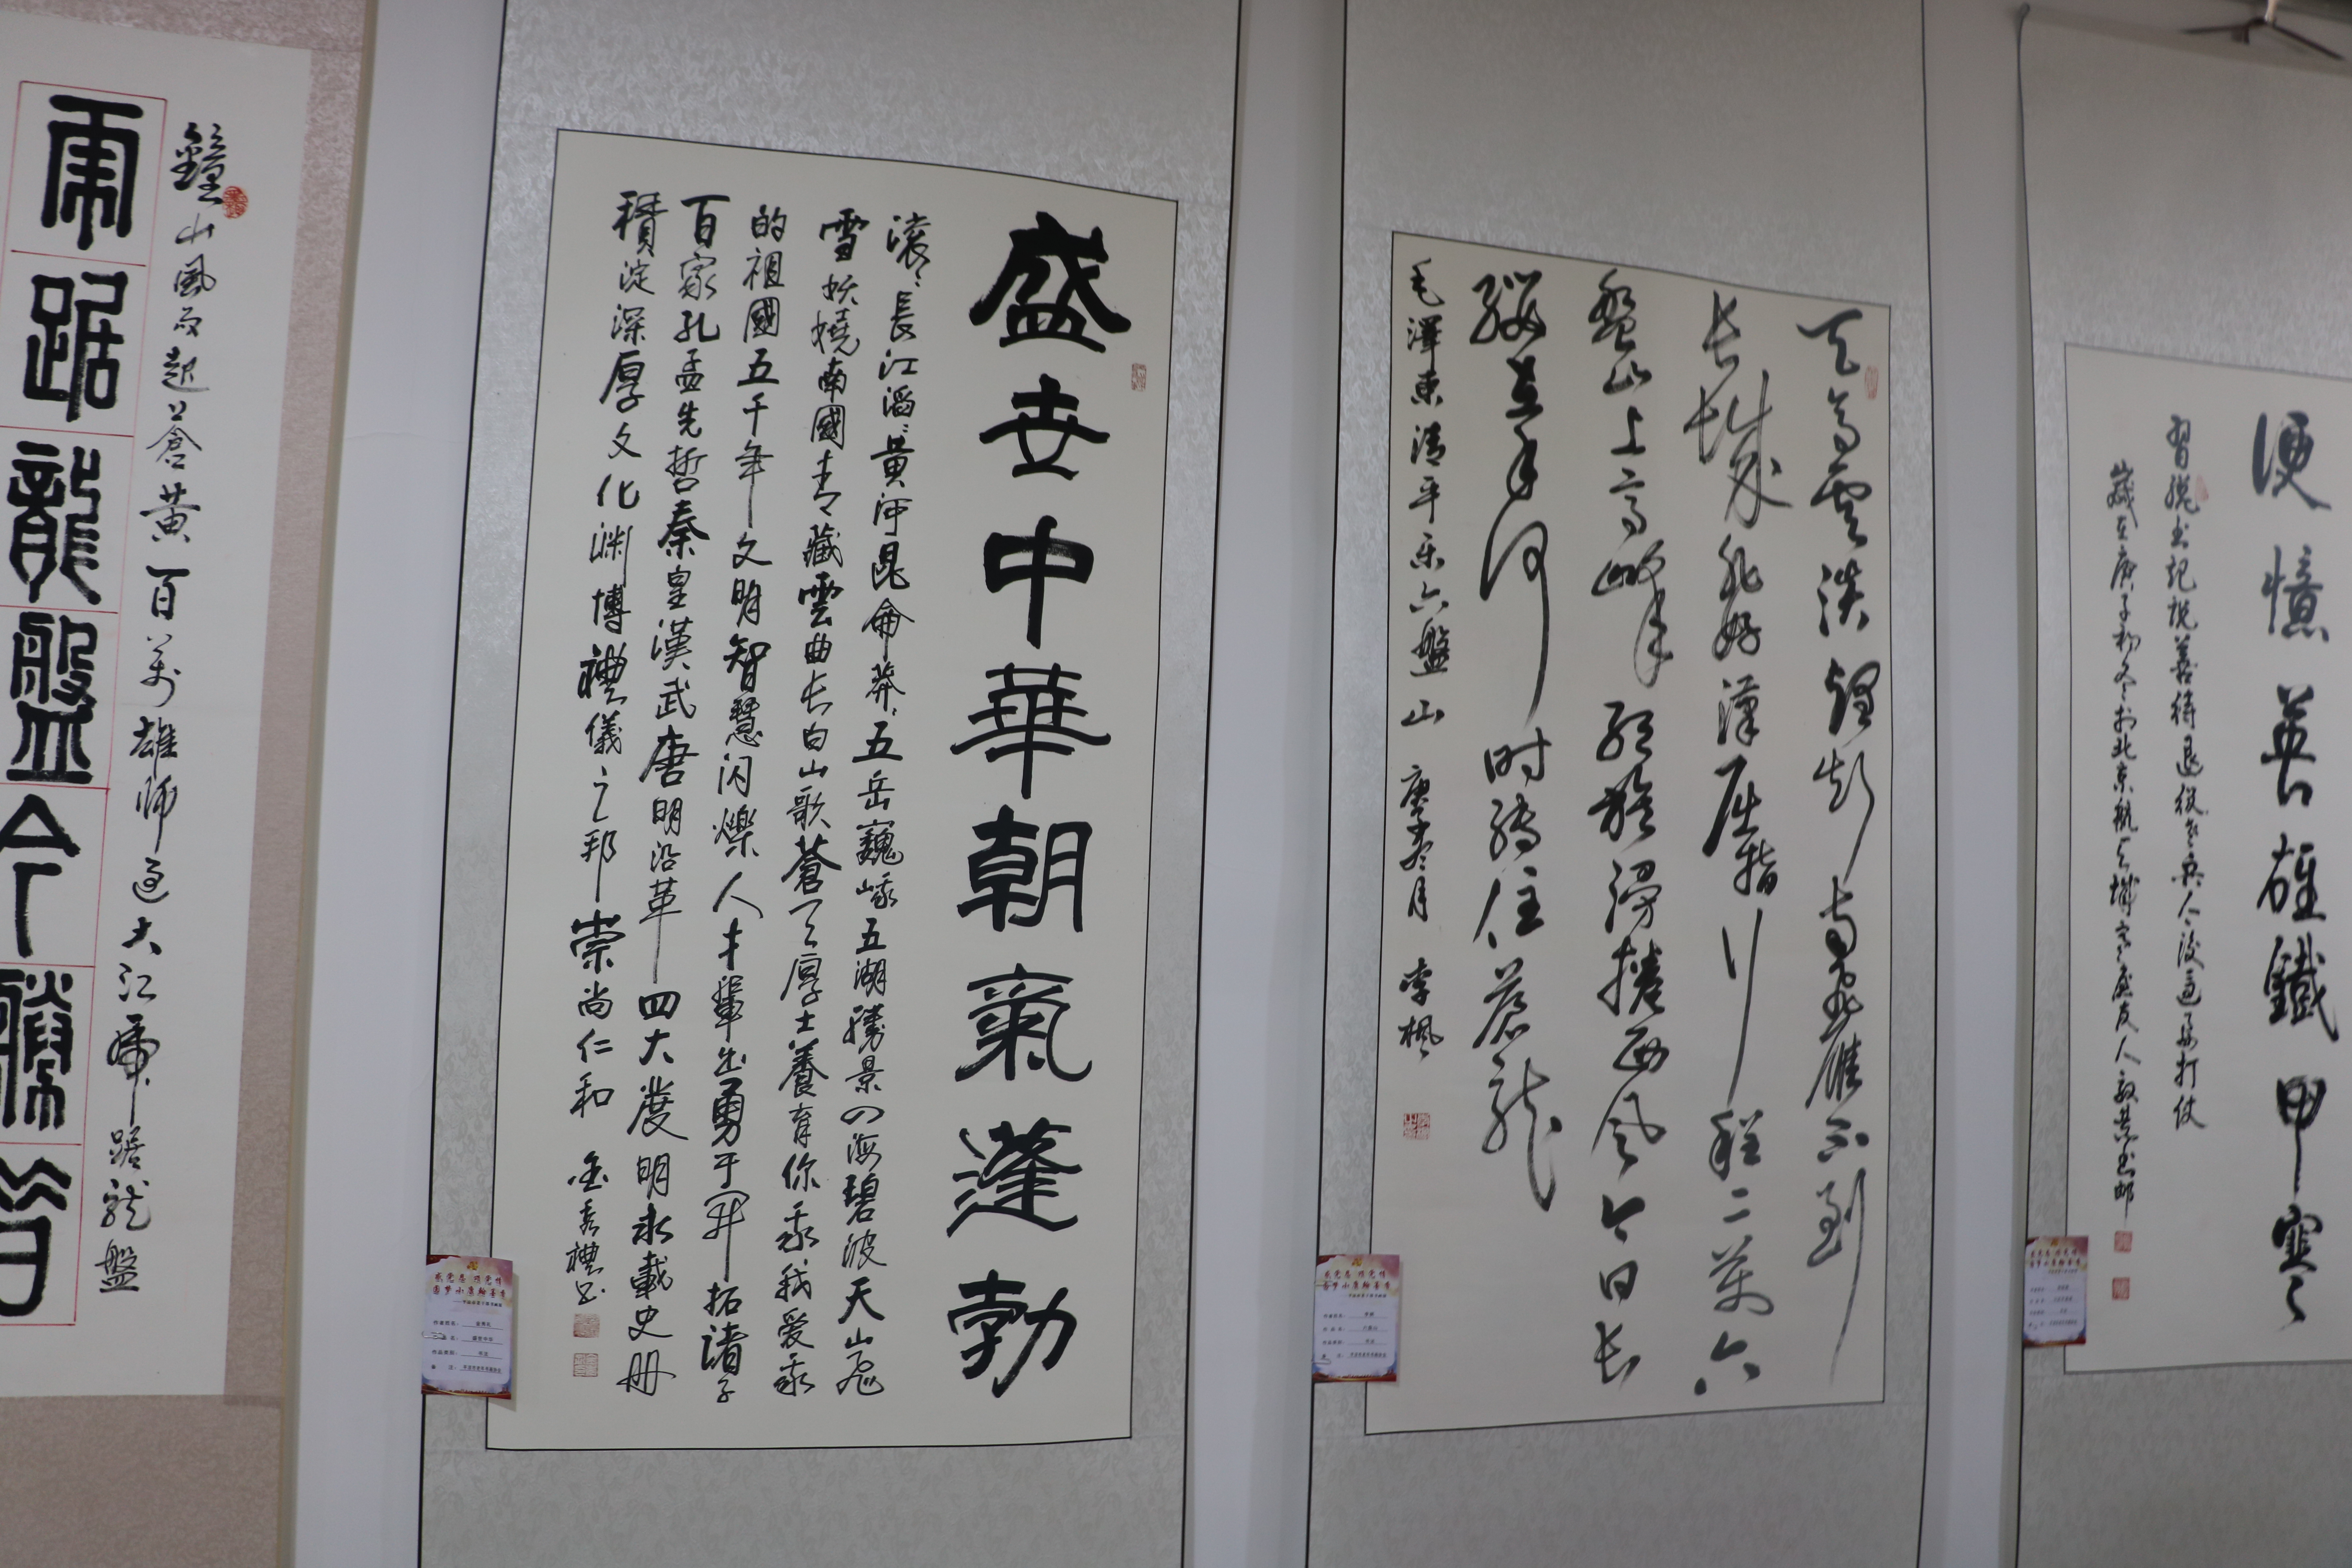 便憶英雄鐵甲寒
天高雲淡望斷南飛雁不到
长城非好漢屈指行程二萬六
盤山上高峰红旗漫捲西风今日长
缨在手何时縛住蒼龍
毛澤東清平乐六盤山 庚子冬月 李枫
盛世中華朝氣蓬勃
滚滚長江滔滔黄河昆侖莽莽五岳巍峨五湖勝景四海碧波天山飛
雪妖嬈南國青藏雲曲长白山歌蒼天厚土養育你我我爱我
的祖國五千年文明智慧闪爍人才輩出勇于開拓諸子
百家孔孟先哲秦皇漢武唐明沿革四大發明永載史册
積淀深厚文化渊博禮儀之邦崇尚仁和 金秀禮书
鐘山風雨起蒼黄百萬雄师过大江虎踞龙盤
虎踞龍盤今勝昔